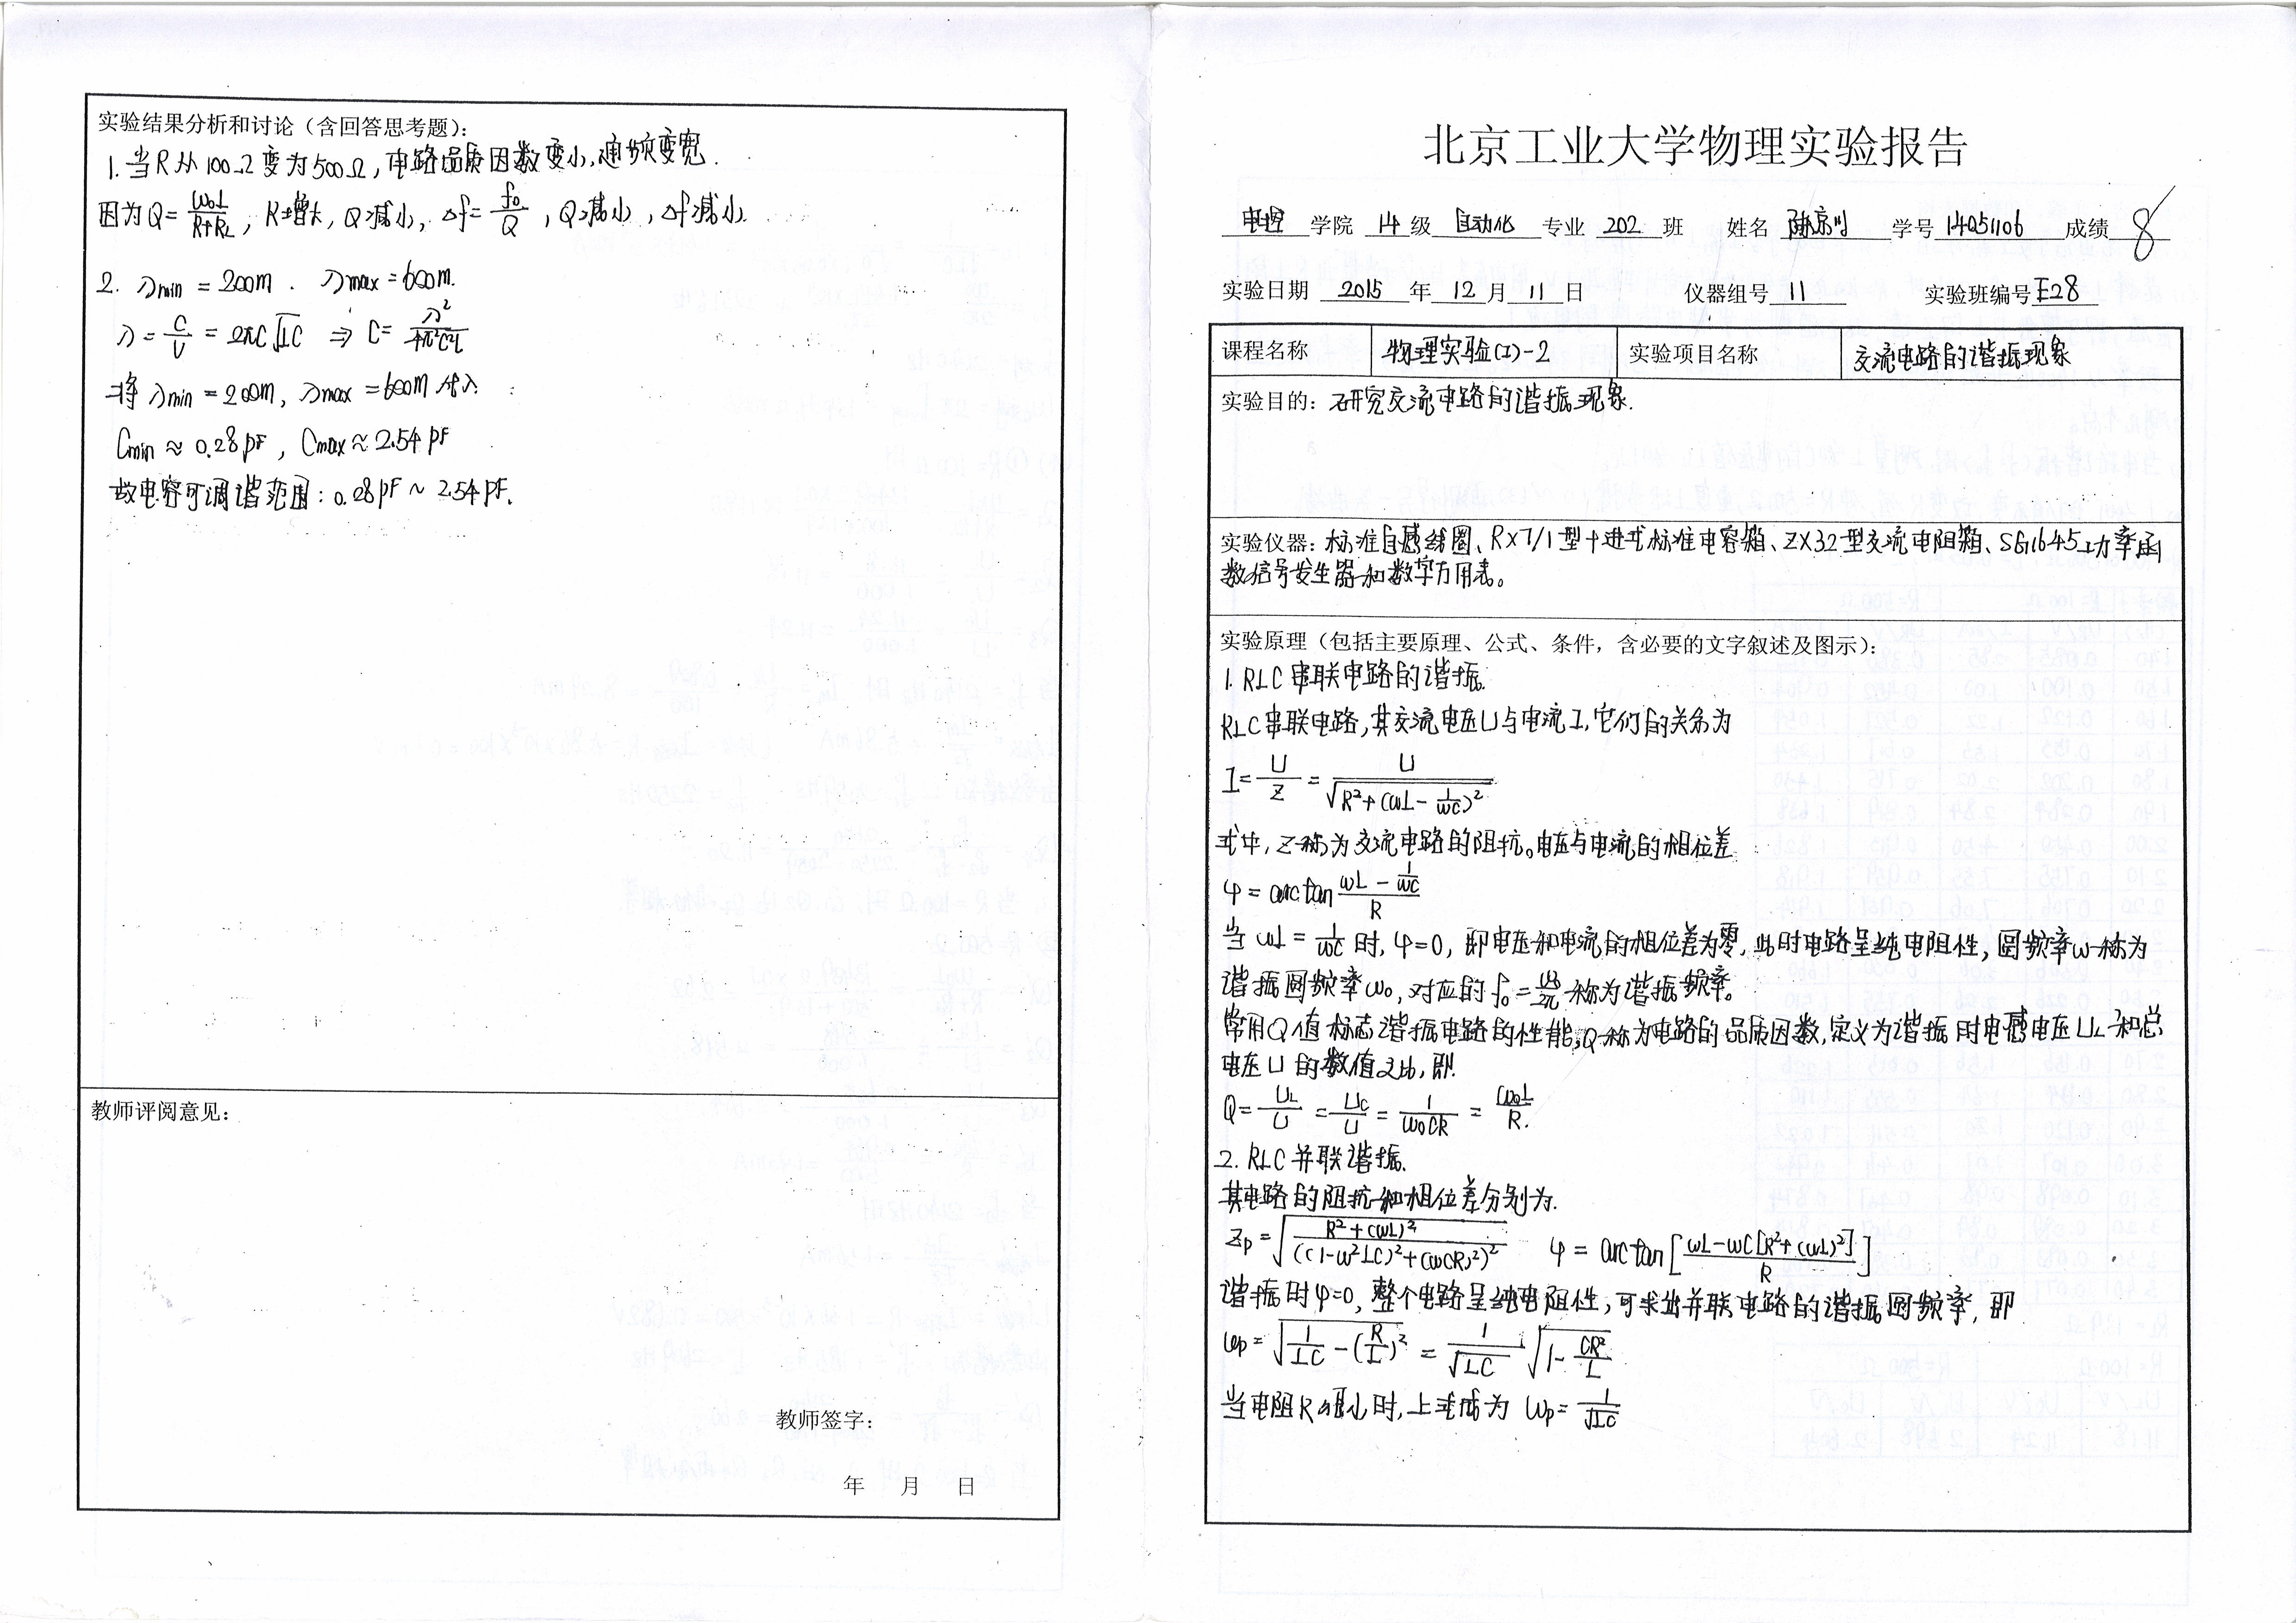 实验结果分析和讨论（含回答思考题）：
1. 当R从100Ω变为500Ω，电路品质因数变小，通频变宽．
因为Q=ω₀L/(R+R_L)，R增大，Q减小，Δf=f₀/Q，Q减小，Δf减小．
2. λmin = 200m． λmax = 600m.
λ = C/ν = 2πC√(LC) ⇒ C = λ²/(4π²C²L)
将 λmin = 200m, λmax = 600m 代入
Cmin ≈ 0.28pF，Cmax ≈ 2.54pF
故电容可调谐范围：0.28pF ~ 2.54pF.
教师评阅意见：
教师签字：
年 月 日
北京工业大学物理实验报告
学院 14 级 自动化 专业 202 班 姓名 学号 14251106 成绩 8
实验日期 2015 年 12 月 11 日 仪器组号 11 实验班编号 E28
课程名称 物理实验(I)-2 实验项目名称 交流电路的谐振现象
实验目的：研究交流电路的谐振现象.
实验仪器：标准自感线圈、RX7/1型十进式标准电容箱、ZX32型交流电阻箱、SG1645功率函
数信号发生器和数字万用表。
实验原理（包括主要原理、公式、条件，含必要的文字叙述及图示）：
1. RLC串联电路的谐振.
RLC串联电路，其交流电压U与电流I，它们的关系为
I = U/Z = U/√(R²+(ωL-1/(ωC))²)
式中，Z称为交流电路的阻抗。电压与电流的相位差
φ = arctan (ωL-1/(ωC))/R
当 ωL = 1/(ωC) 时，φ=0，即电压和电流的相位差为零，此时电路呈纯电阻性，圆频率ω称为
谐振圆频率ω₀，对应的 f₀ = ω₀/2π 称为谐振频率。
常用Q值标志谐振电路的性能，Q称为电路的品质因数，定义为谐振时电感电压U_L和总
电压U的数值之比，即.
Q = U_L/U = U_C/U = 1/(ω₀CR) = ω₀L/R.
2. RLC并联谐振.
其电路的阻抗和相位差分别为.
Zp = √((R²+(ωL)²)/((1-ω²LC)²+(ωCR)²)²) φ = arctan[(ωL-ωC[R²+(ωL)²])/R]
谐振时φ=0，整个电路呈纯电阻性，可求出并联电路的谐振圆频率，即
ωp = √(1/(LC) - (R/L)²) = 1/√(LC) √(1-CR²/L)
当电阻R很小时，上式成为 ωp = 1/√(LC)